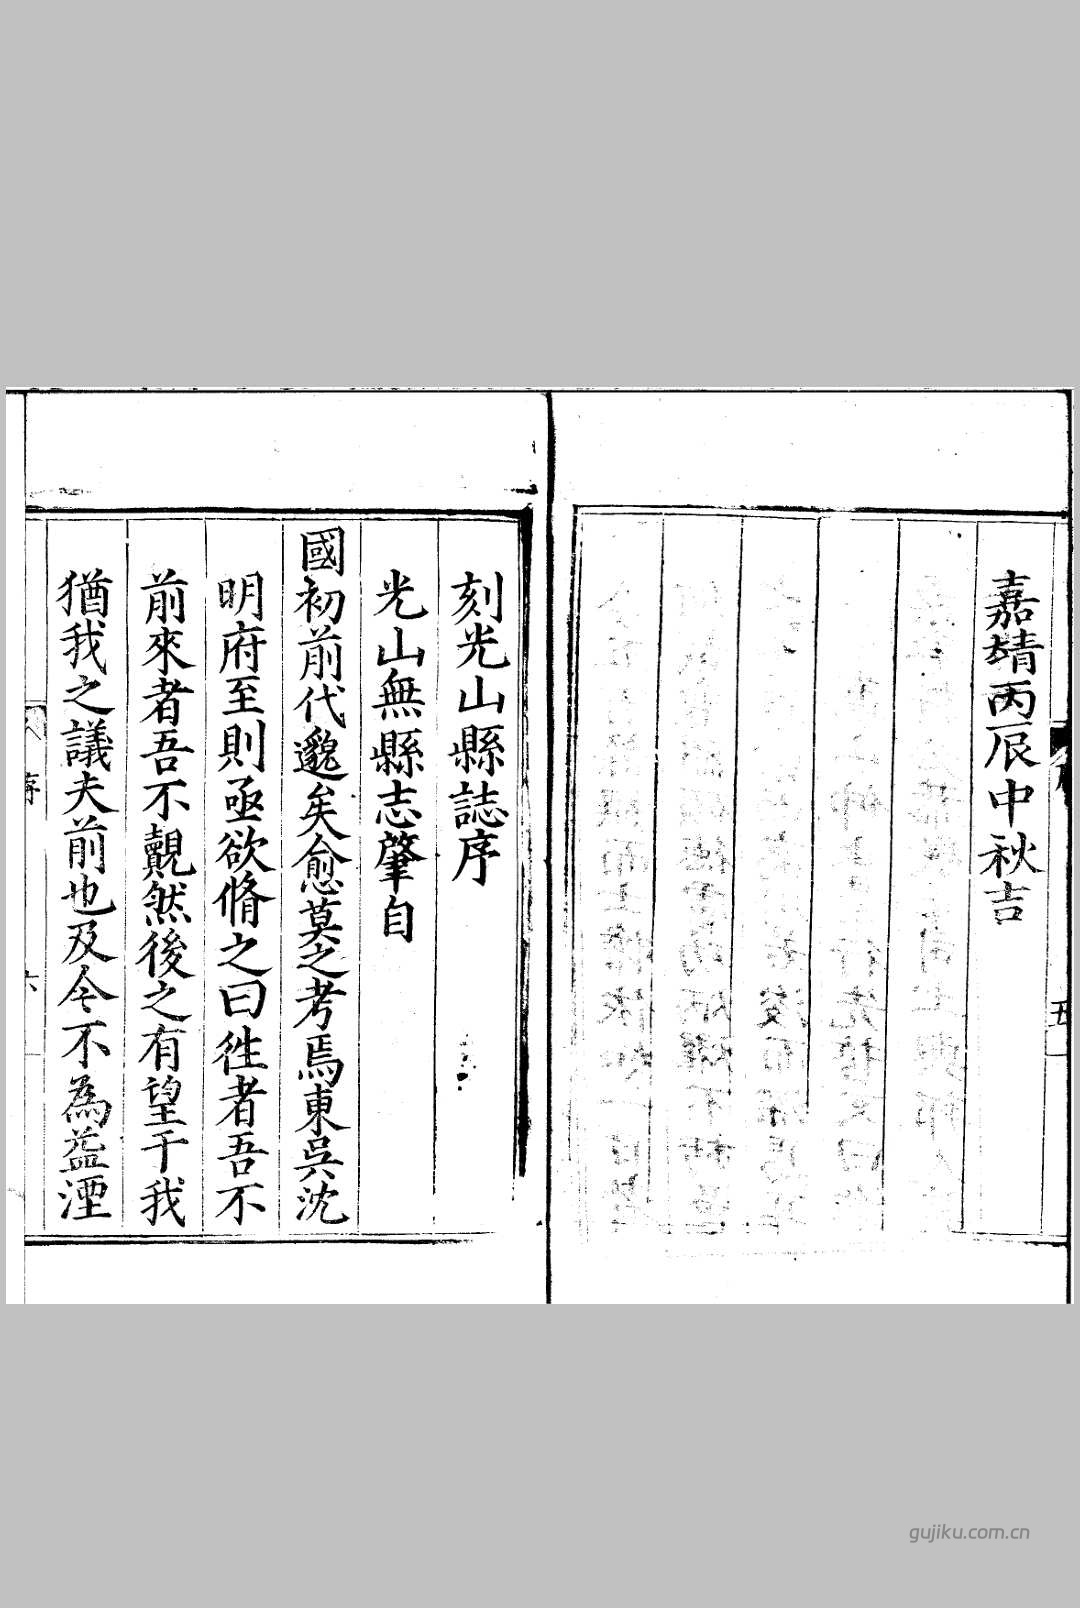 嘉靖丙辰中秋吉
五
刻光山縣誌序
光山無縣志肇自
國初前代邈矣愈莫之考焉東吳沈
明府至則亟欲脩之曰徃者吾不
前來者吾不覿然後之有望于我
猶我之議夫前也及今不為益湮
六
gujiku.com.cn